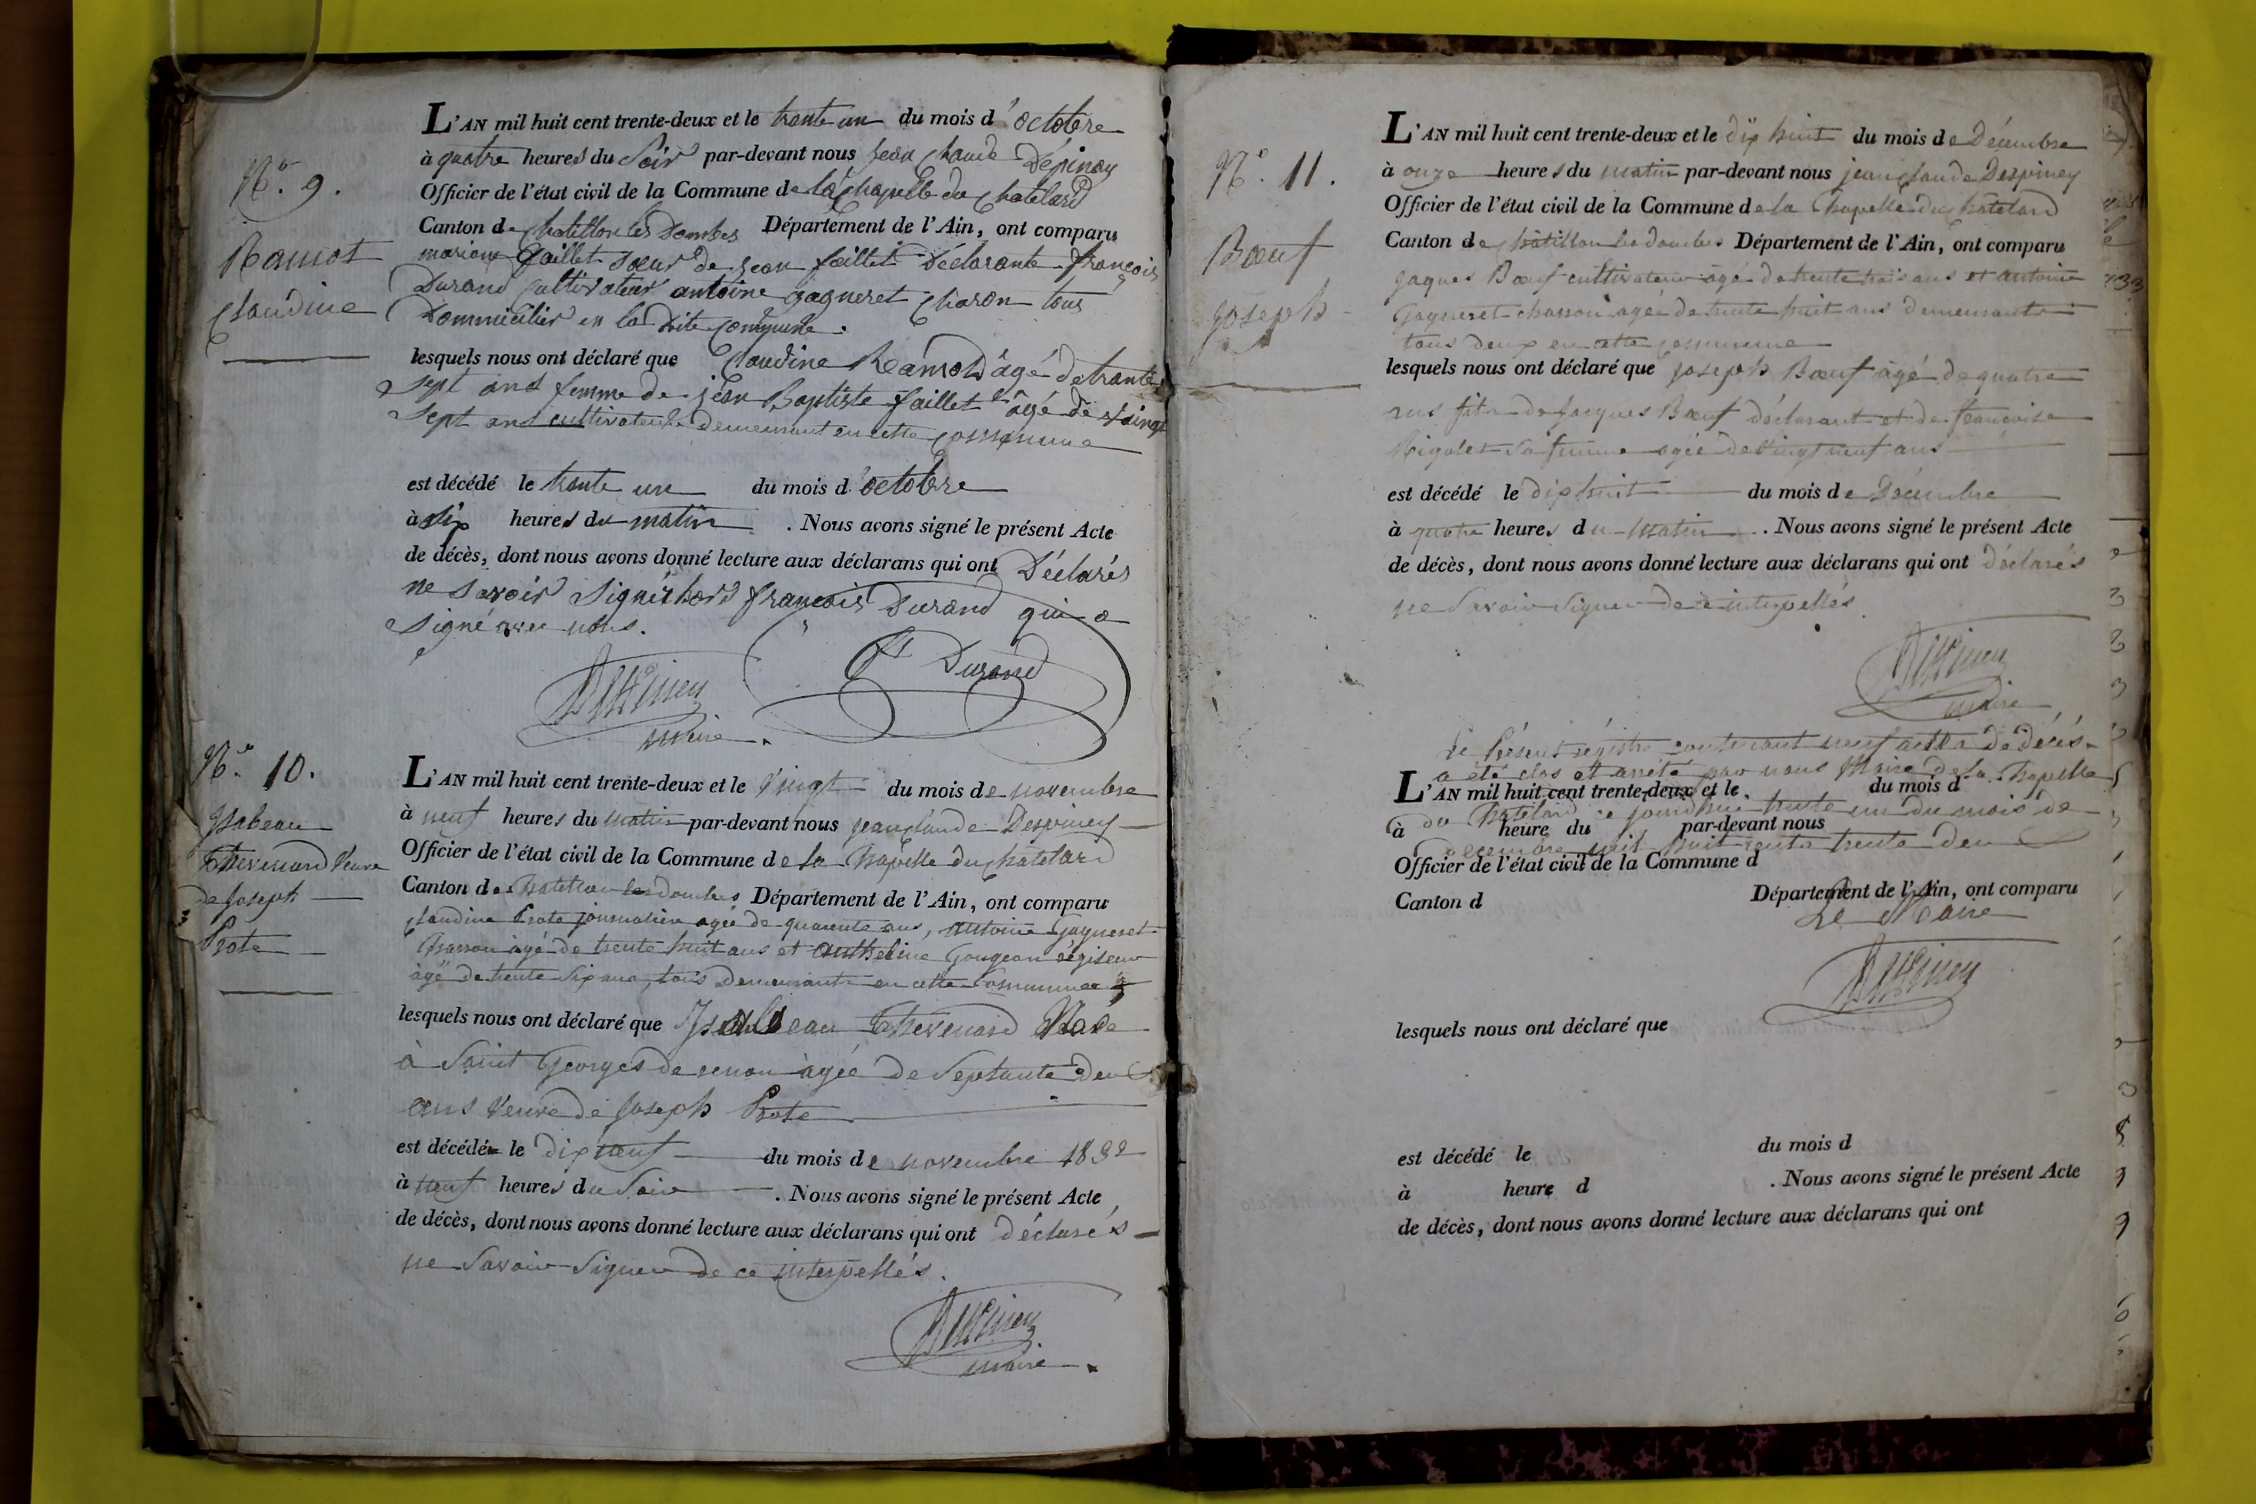 N.º 9.
Ramot
Claudine
L'AN mil huit cent trente-deux et le trante un du mois d'octobre
à quatre heures du soir par-devant nous jean Claude Dépinay
Officier de l'état civil de la Commune de la chapelle du Chatelard
Canton de Chatillon les Dombes Département de l'Ain, ont comparu
mariane faillet sœur de jean faillet Déclarante françois
Durand Cultivateur antoine gagneret Charon tous
Dommicilier en la Dite Commune.
lesquels nous ont déclaré que Claudine Ramot âgé de trante
sept ans femme de jean Baptiste faillet âgé de vingt
sept ans cultivateur demeurant en cette commune
est décédé le trante un du mois d'octobre
à six heures du matin. Nous avons signé le présent Acte
de décès, dont nous avons donné lecture aux déclarans qui ont Déclarés
ne savoir signér hors françois Durand qui a
signé avec nous.
Durand
maire.
N.º 10.
Ysabeau
Thevenard Veuve
de Joseph
Prote
L'AN mil huit cent trente-deux et le Vingt du mois de novembre
à neuf heures du matin par-devant nous jean claude Despiney
Officier de l'état civil de la Commune de la Chapelle du chatelard
Canton de Chatillon les dombes Département de l'Ain, ont comparu
Claudine Prote journalière agée de quarente ans, antoine Gagneret
Charron âgé de trente huit ans et Goujeon régisseur
âgé de trente six ans, tous demeurants en cette Commune
lesquels nous ont déclaré que Ysabeau Thevenard Née
à Saint Georges de renon âgée de Septante deux
ans Veuve de Joseph Prote
est décédée le dix neuf du mois de novembre 1832
à neuf heures du Soir. Nous avons signé le présent Acte
de décès, dont nous avons donné lecture aux déclarans qui ont déclarés
ne Savoir Signer de ce interpellés.
maire.
N.º 11.
Bœuf
Joseph
L'AN mil huit cent trente-deux et le dix huit du mois de Décembre
à onze heures du matin par-devant nous jean claude Despiney
Officier de l'état civil de la Commune de la Chapelle du chatelard
Canton de chatillon les dombes Département de l'Ain, ont comparu
jaques Bœuf cultivateur âgé de trente trois ans et antoine
Gagneret charron agé de trente huit ans demeurants
tous deux en cette commune
lesquels nous ont déclaré que joseph Bœuf âgé de quatre
ans fils de Jacques Bœuf déclarant et de françoise
Rigolet sa femme agée de Vingt neuf ans
est décédé le dix huit du mois de Décembre
à quatre heures du matin. Nous avons signé le présent Acte
de décès, dont nous avons donné lecture aux déclarans qui ont déclarés
ne Savoir Signer de ce interpellés
maire
Le Présent régistre contenant neuf actes de décés
a été clos et arrêté par nous Maire de la Chapelle
L'AN mil huit cent trente-deux et le du mois d
du Chatelard ce jourdhui trente un du mois de
à heure du par-devant nous
Décembre mil huit cents trente deux
Officier de l'état civil de la Commune d
Canton d Département de l'Ain, ont comparu
Le Maire
lesquels nous ont déclaré que
est décédé le du mois d
à heure d. Nous avons signé le présent Acte
de décès, dont nous avons donné lecture aux déclarans qui ont